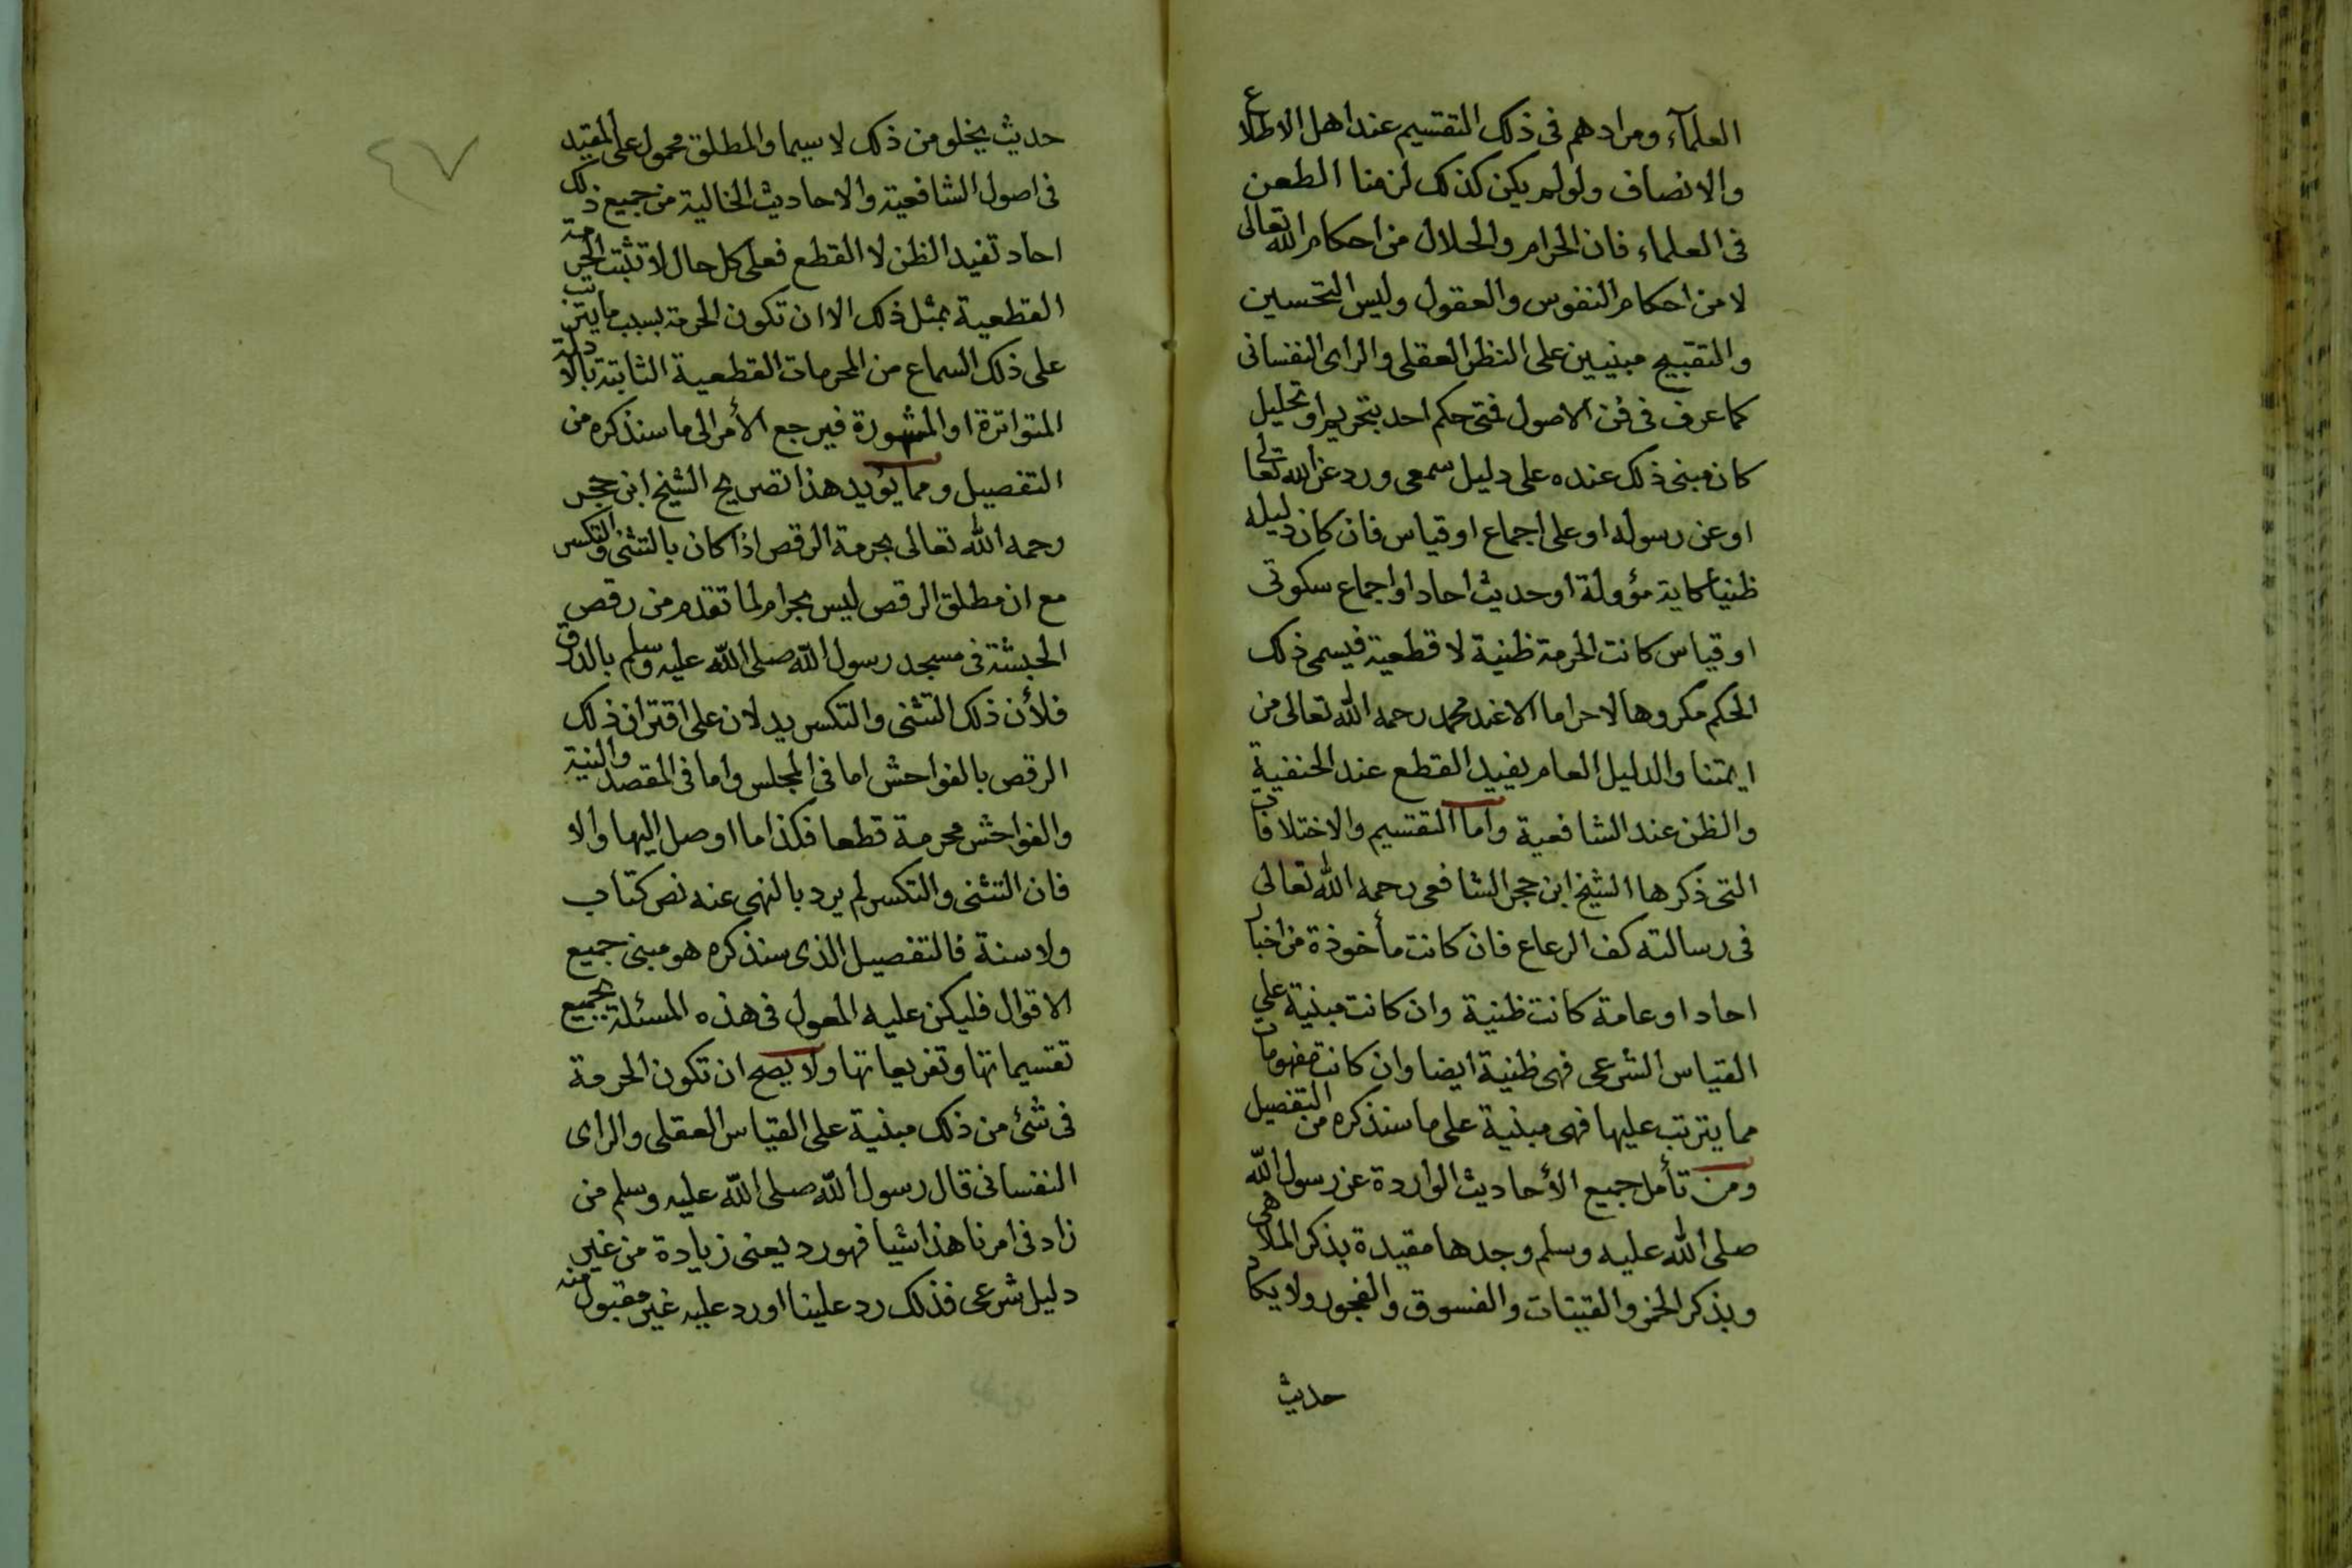 العلمآء ومرادهم فى ذلك التقسيم عند اهل الاطلاع
والانصاف ولو لم يكن كذلك لزمنا الطعن
فى العلماء فان الحرام والحلال من احكام الله تعالى
لا من احكام النفوس والعقول وليس التحسين
والتقبيح مبنيين على النظر العقلى والراى النفسانى
كما عرف فى فن الاصول فمتى حكم احد بتحريم او تحليل
كان مبنى ذلك عنده على دليل سمعى ورد عن الله تعالى
او عن رسوله او على اجماع او قياس فان كان دليله
ظنيا كاية مؤولة او حديث احاد او اجماع سكوتى
او قياس كانت الحرمة ظنية لا قطعية فيسمى ذلك
الحكم مكروها لا حراما الا عند محمد رحمه الله تعالى من
ايمتنا والدليل العام يفيد القطع عند الحنفية
والظن عند الشافعية واما التقسيم والاختلافات
التى ذكرها الشيخ ابن حجر الشافعى رحمه الله تعالى
فى رسالته كف الرعاع فان كانت مأخوذة من اخبار
احاد او عامة كانت ظنية وان كانت مبنية على
القياس الشرعى فهى ظنية ايضا وان كانت مفهومات
مما يترتب عليها فهى مبنية على ما سنذكره من التفصيل
ومن تأمل جميع الأحاديث الواردة عن رسول الله
صلى الله عليه وسلم وجدها مقيدة بذكر الملاهى
وبذكر الخمر والقينات والفسوق والفجور ولا يكاد
حديث
٤٧
حديث يخلو من ذلك لا سيما والمطلق محمول على المقيد
فى اصول الشافعية والاحاديث الخالية من جميع ذلك
احاد تفيد الظن لا القطع فعلى كل حال لا تثبت الحرمة
القطعية بمثل ذلك الا ان تكون الحرمة بسبب ما يترتب
على ذلك السماع من المحرمات القطعية الثابتة بالادلة
المتواترة او المشهورة فيرجع الأمر الى ما سنذكره من
التفصيل ومما يؤيد هذا تصريح الشيخ ابن حجر
رحمه الله تعالى بحرمة الرقص اذا كان بالتثنى والتكسر
مع ان مطلق الرقص ليس بحرام لما تقدم من رقص
الحبشة فى مسجد رسول الله صلى الله عليه وسلم بالدرق
فلأن ذلك التثنى والتكسر يدلان على اقتران ذلك
الرقص بالفواحش اما فى المجلس واما فى المقصد والنية
والفواحش محرمة قطعا فكذا ما اوصل اليها والا
فان التثنى والتكسر لم يرد بالنهى عنه نص كتاب
ولا سنة فالتفصيل الذى سنذكره هو مبنى جميع
الاقوال فليكن عليه المعول فى هذه المسئلة بجميع
تقسيماتها وتفريعاتها ولا يصح ان تكون الحرمة
فى شئ من ذلك مبنية على القياس العقلى والراى
النفسانى قال رسول الله صلى الله عليه وسلم من
زاد فى امرنا هذا شيا فهو رد يعنى زيادة من غير
دليل شرعى فذلك رد علينا او رد عليه غير مقبول منه